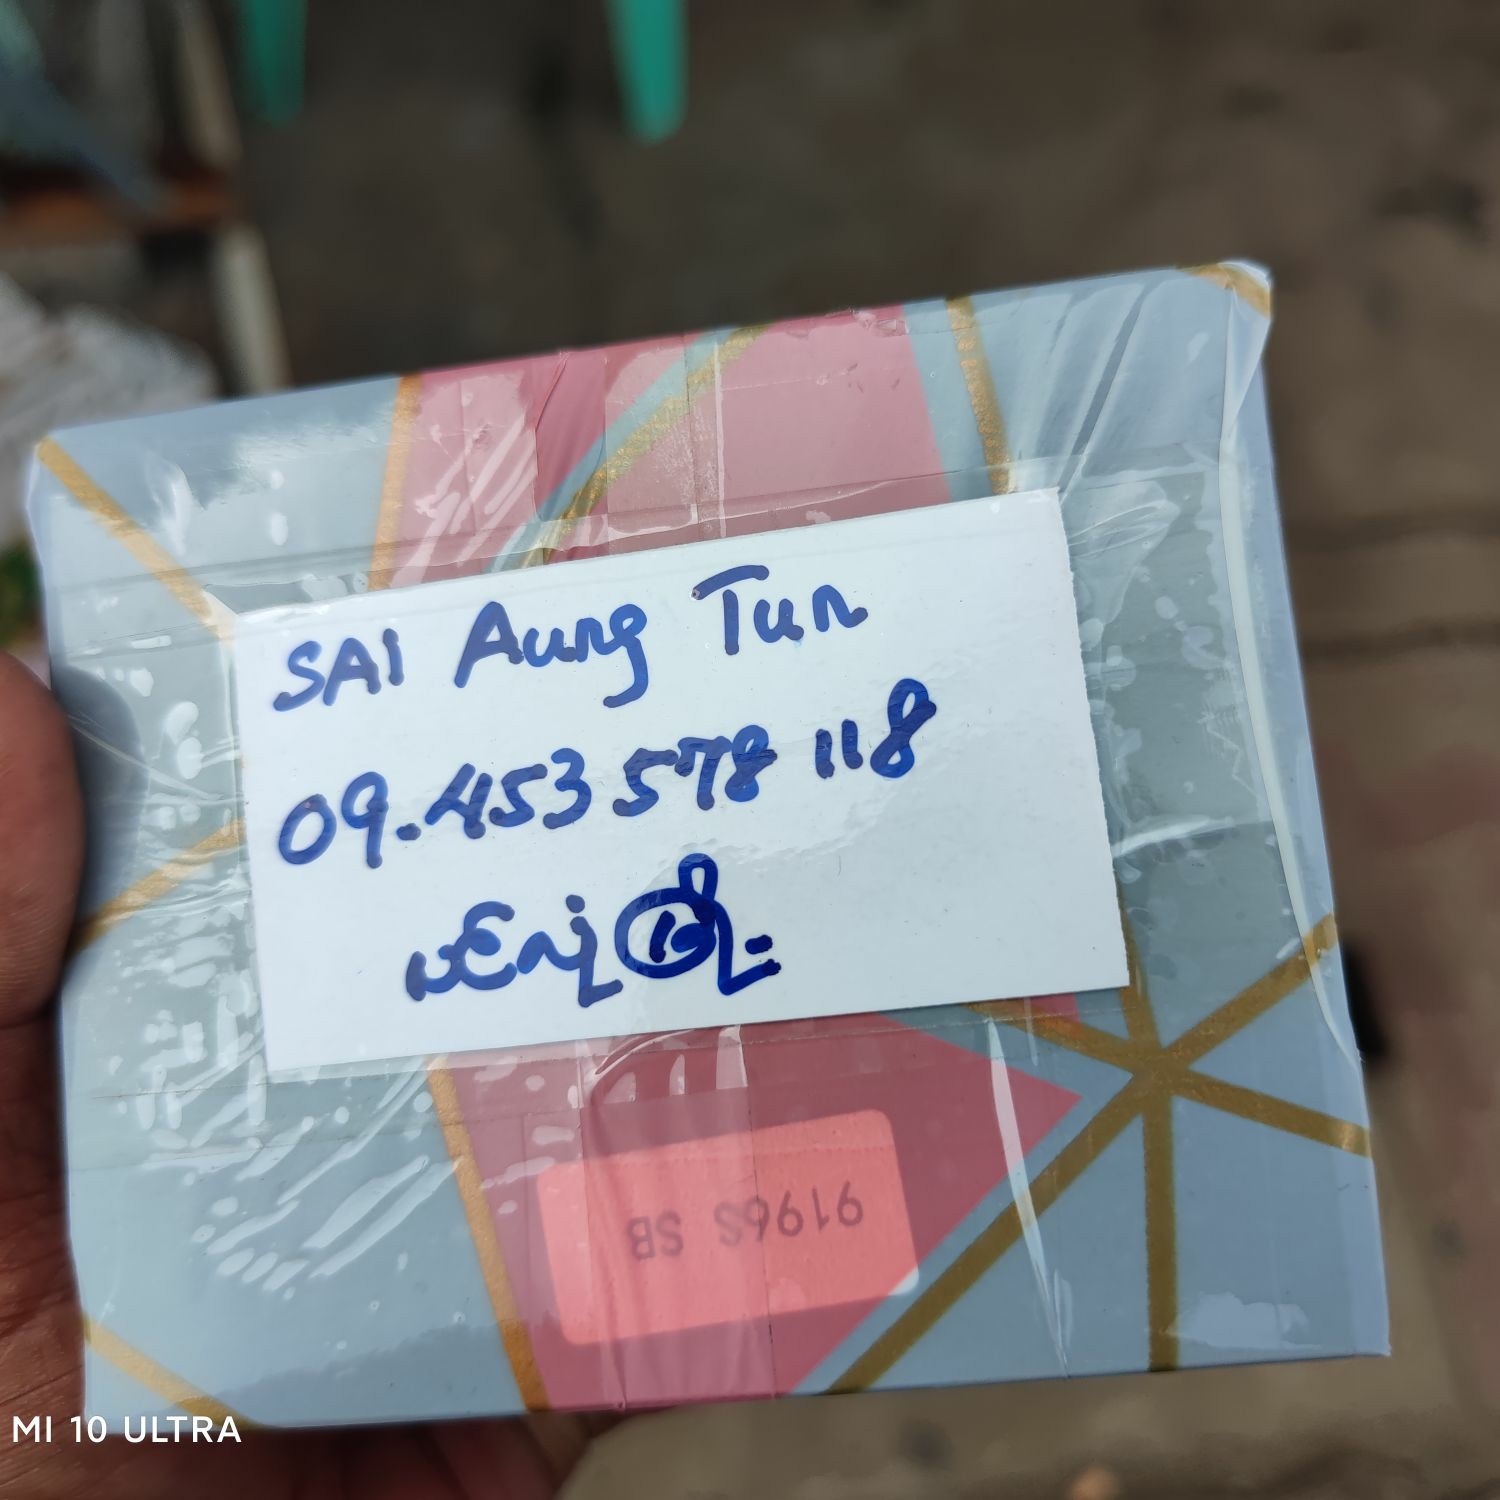 SAI Aung Tun
09.453 578 118
9196S SB
MI 10 ULTRA